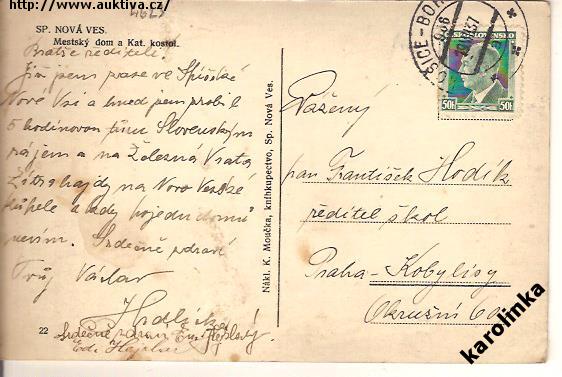 http://www.auktiva.cz/
SP. NOVÁ VES.
Mestský dom a Kat. kostol.
Bratře řediteli!
Již jsem zase ve Spišské
Nové Vsi a hned jsem prošil
5 hodinovou túru Slovenským
rájem a na Železná Vrata
Zítra hajdy na Novo Veské
kúpele a kdy pojedu domů
nevím. Srdečně zdraví
Tvůj Václav
Hodlička
Srdečně zdraví
22
Nákl. K. Moučka, knihkupectvo, Sp. Nová Ves.
KOŠICE-BOH
50h
50h
Vážený
pan František Hodík
ředitel škol
Praha-Kobylisy
Okružní 60
karolinka